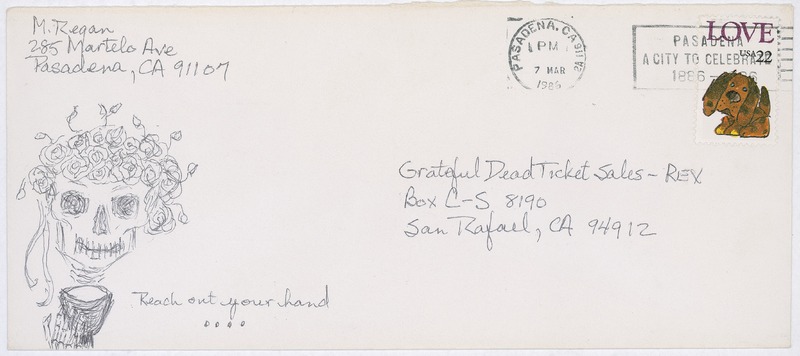 M. Regan
285 Martelo Ave
Pasadena, CA 91107
PASADENA, CA 911
PM
7 MAR
1986
PASADENA
A CITY TO CELEBRATE
1886-1986
LOVE
USA 22
Grateful Dead Ticket Sales - REX
Box C-S 8190
San Rafael, CA 94912
Reach out your hand
....